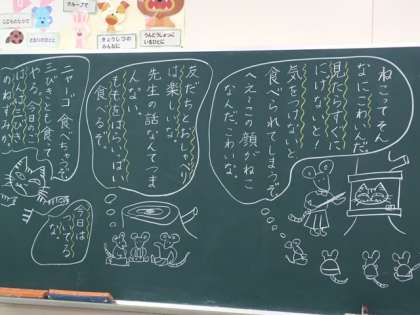 グループで
きょうしつの
みんなに
うんどうじょうに
いるひとに
ねこってそん
なにこわいんだ。
見たらすぐに
にげないと!
気をつけないと
食べられてしまうぞ。
へえ〜この顔がねこ
なんだこわいな。
友だちとおしゃべり
は楽しいな。
先生の話なんてつま
んない。
いっぱい
食べるぞ。
ニャーゴ 食べちゃうぞ
三びきとも食って
やる。今日のご
はんは三びき
のねずみか。
今日は
ついてる
な。